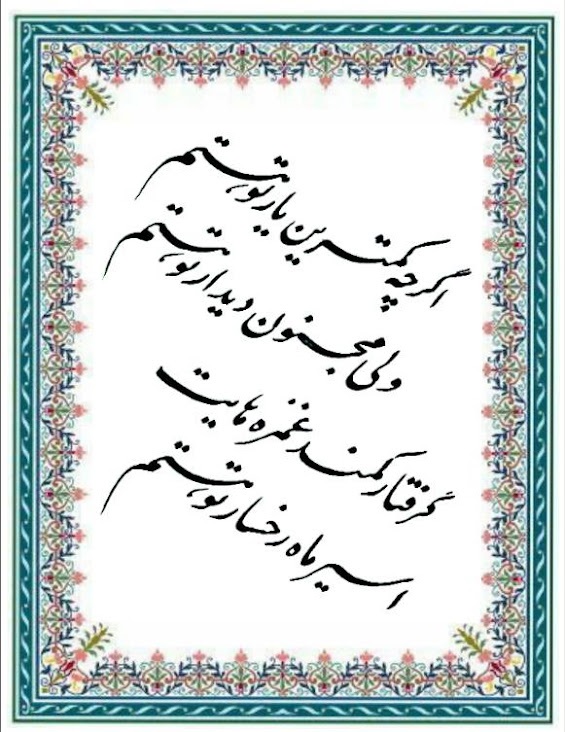 اگرچه کمترین یار تو هستم
ولی مجنون دیدار تو هستم
گرفتار کمند غمزه هایت
اسیر ماه رخسار تو هستم